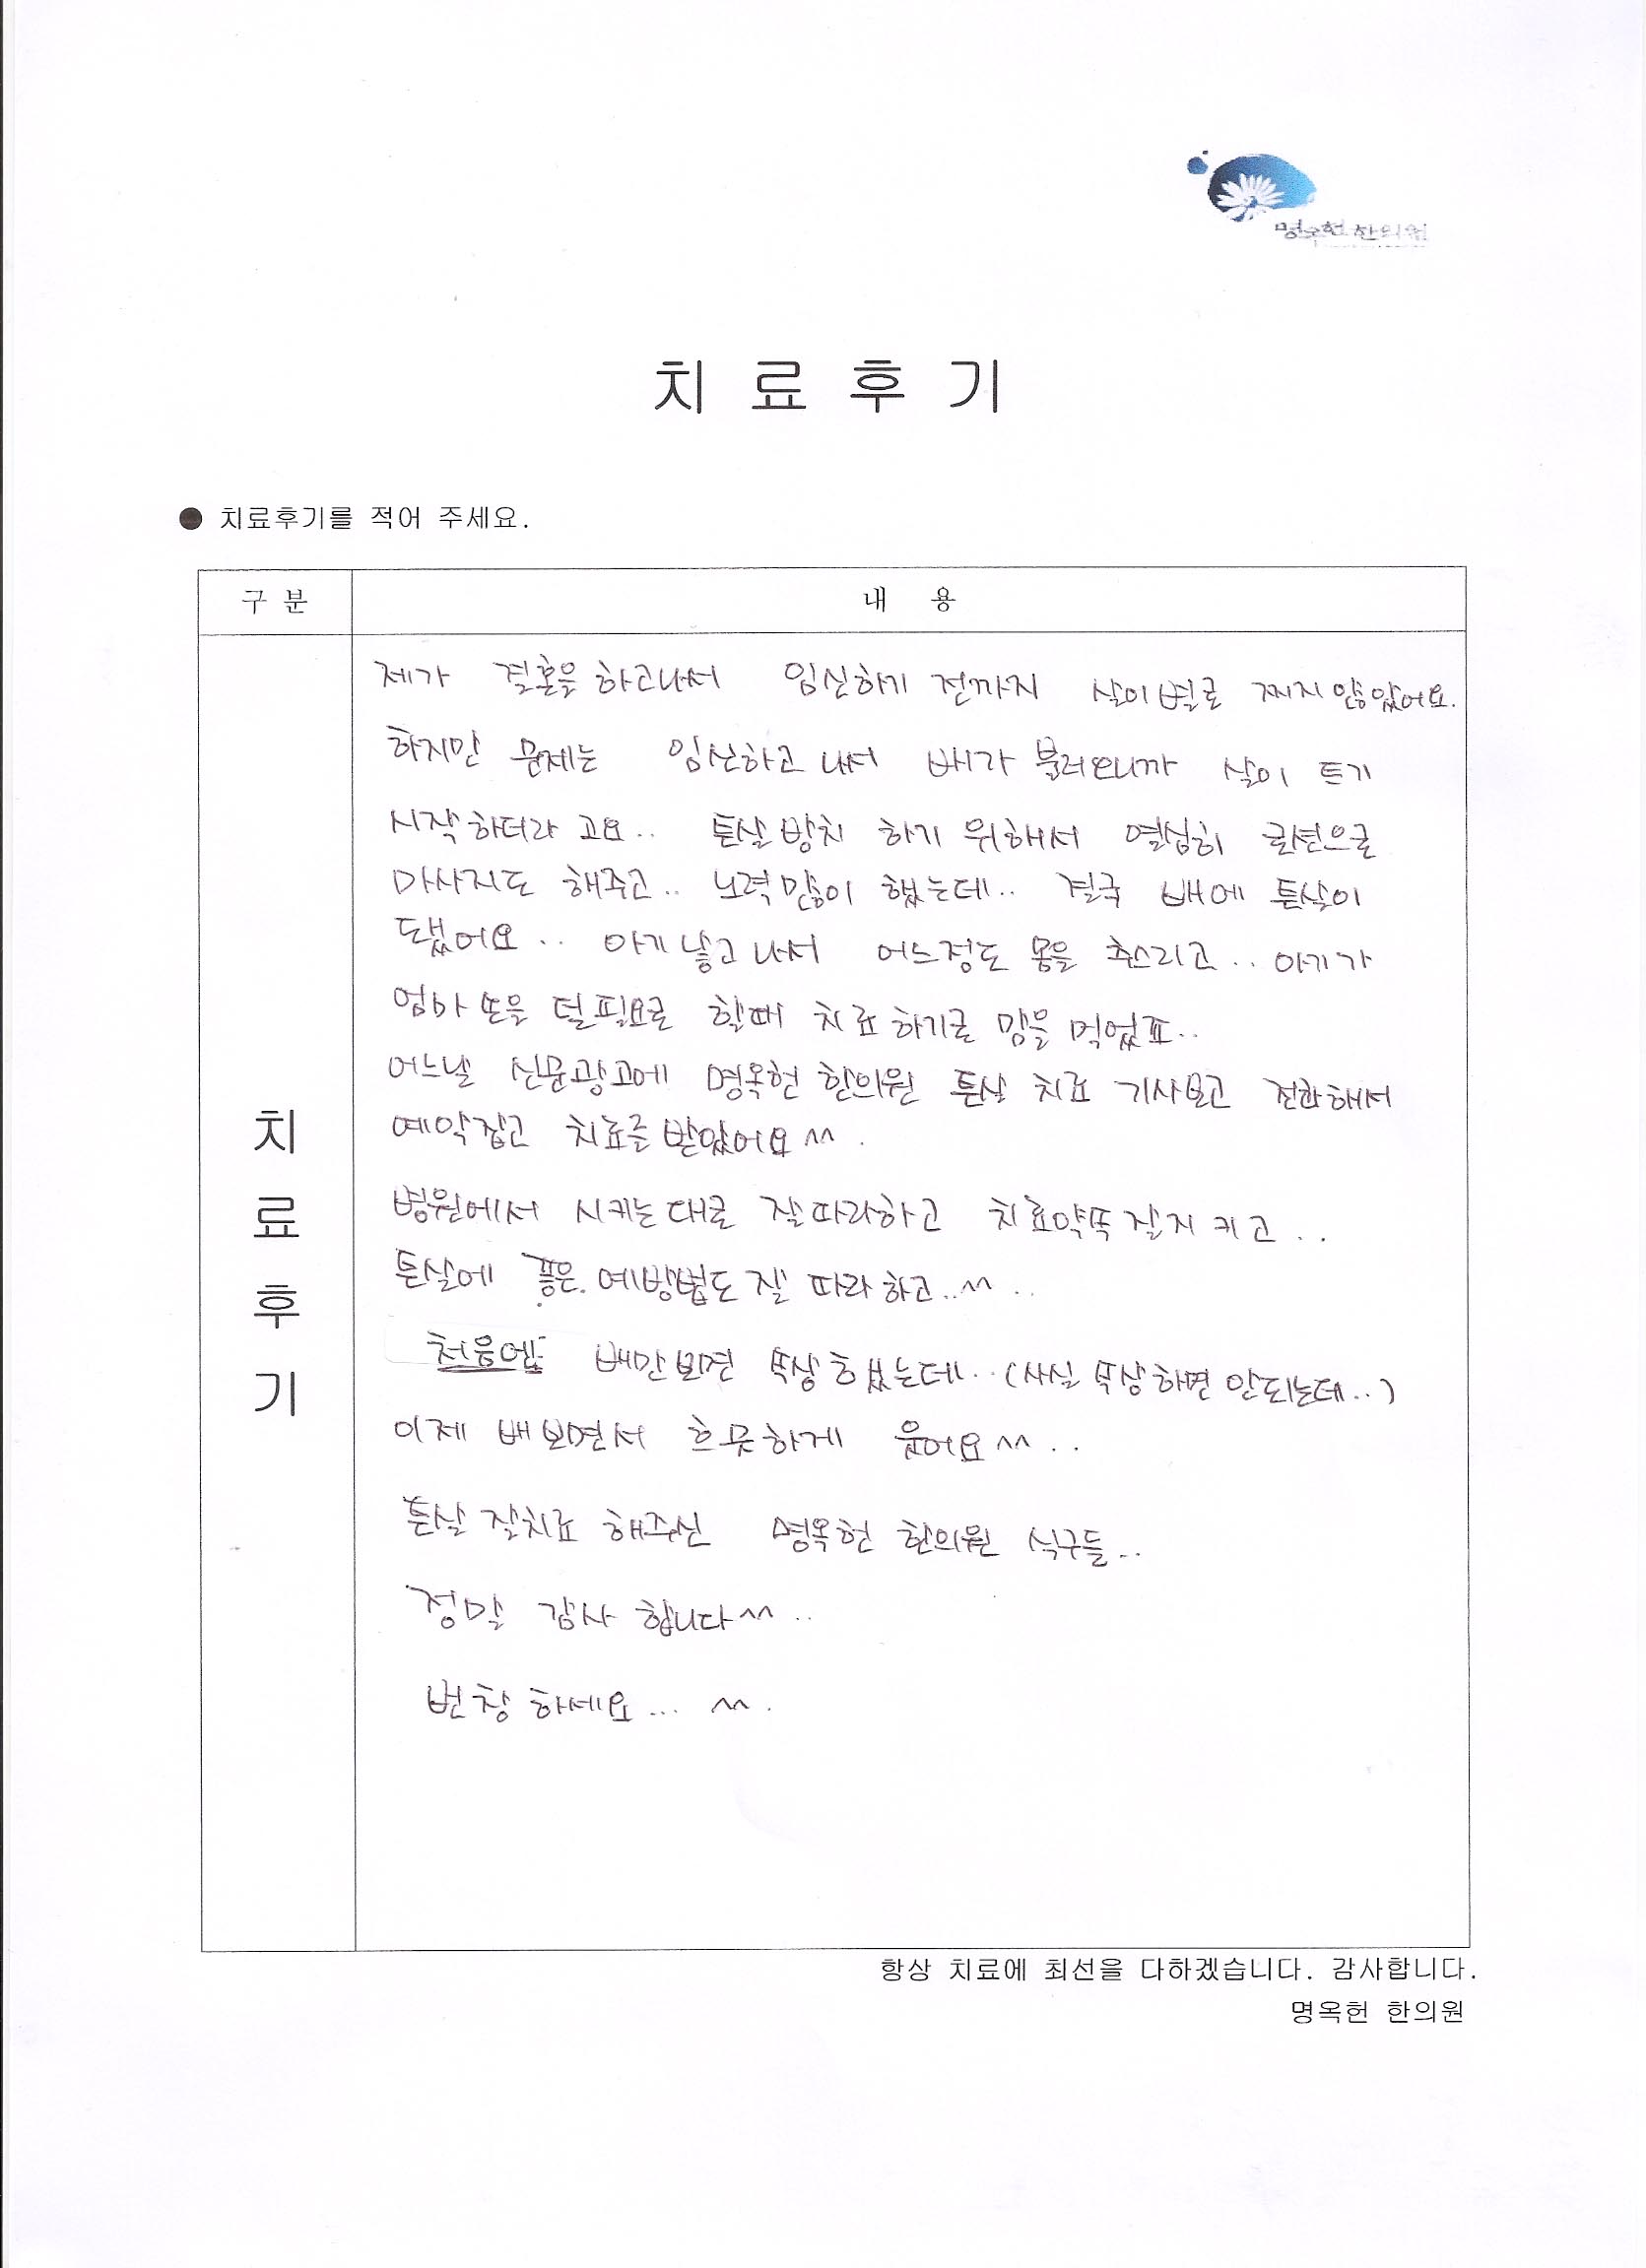 명옥헌 한의원
치 료 후 기
● 치료후기를 적어 주세요.
구 분
내 용
제가 결혼을 하고나서 임신하기 전까지 살이 별로 찌지 않았어요.
하지만 문제는 임신하고 나서 배가 불러오니까 살이 트기
시작하더라 고요.. 튼살방치 하기 위해서 열심히 로션으로
마사지도 해주고.. 노력많이 했는데.. 결국 배에 튼살이
됐어요.. 아기 낳고 나서 어느정도 몸을 추스리고.. 아기가
엄마 손을 덜필요로 할때 치료하기로 맘을 먹었죠..
어느날 신문광고에 명옥헌 한의원 튼살 치료 기사보고 전화해서
예약잡고 치료를 받았어요^^.
병원에서 시키는대로 잘따라하고 치료약쏙잘지키고..
튼살에 좋은 예방법도 잘 따라하고..^^..
처음엔 배만보면 쏙상했는데..(사실 쏙상하면 안되는데..)
이제 배보면서 흐뭇하게 웃어요^^..
튼살 잘치료 해주신 명옥헌 한의원 식구들..
정말 감사 합니다^^..
번창하세요... ^^.
치
료
후
기
항상 치료에 최선을 다하겠습니다. 감사합니다.
명옥헌 한의원